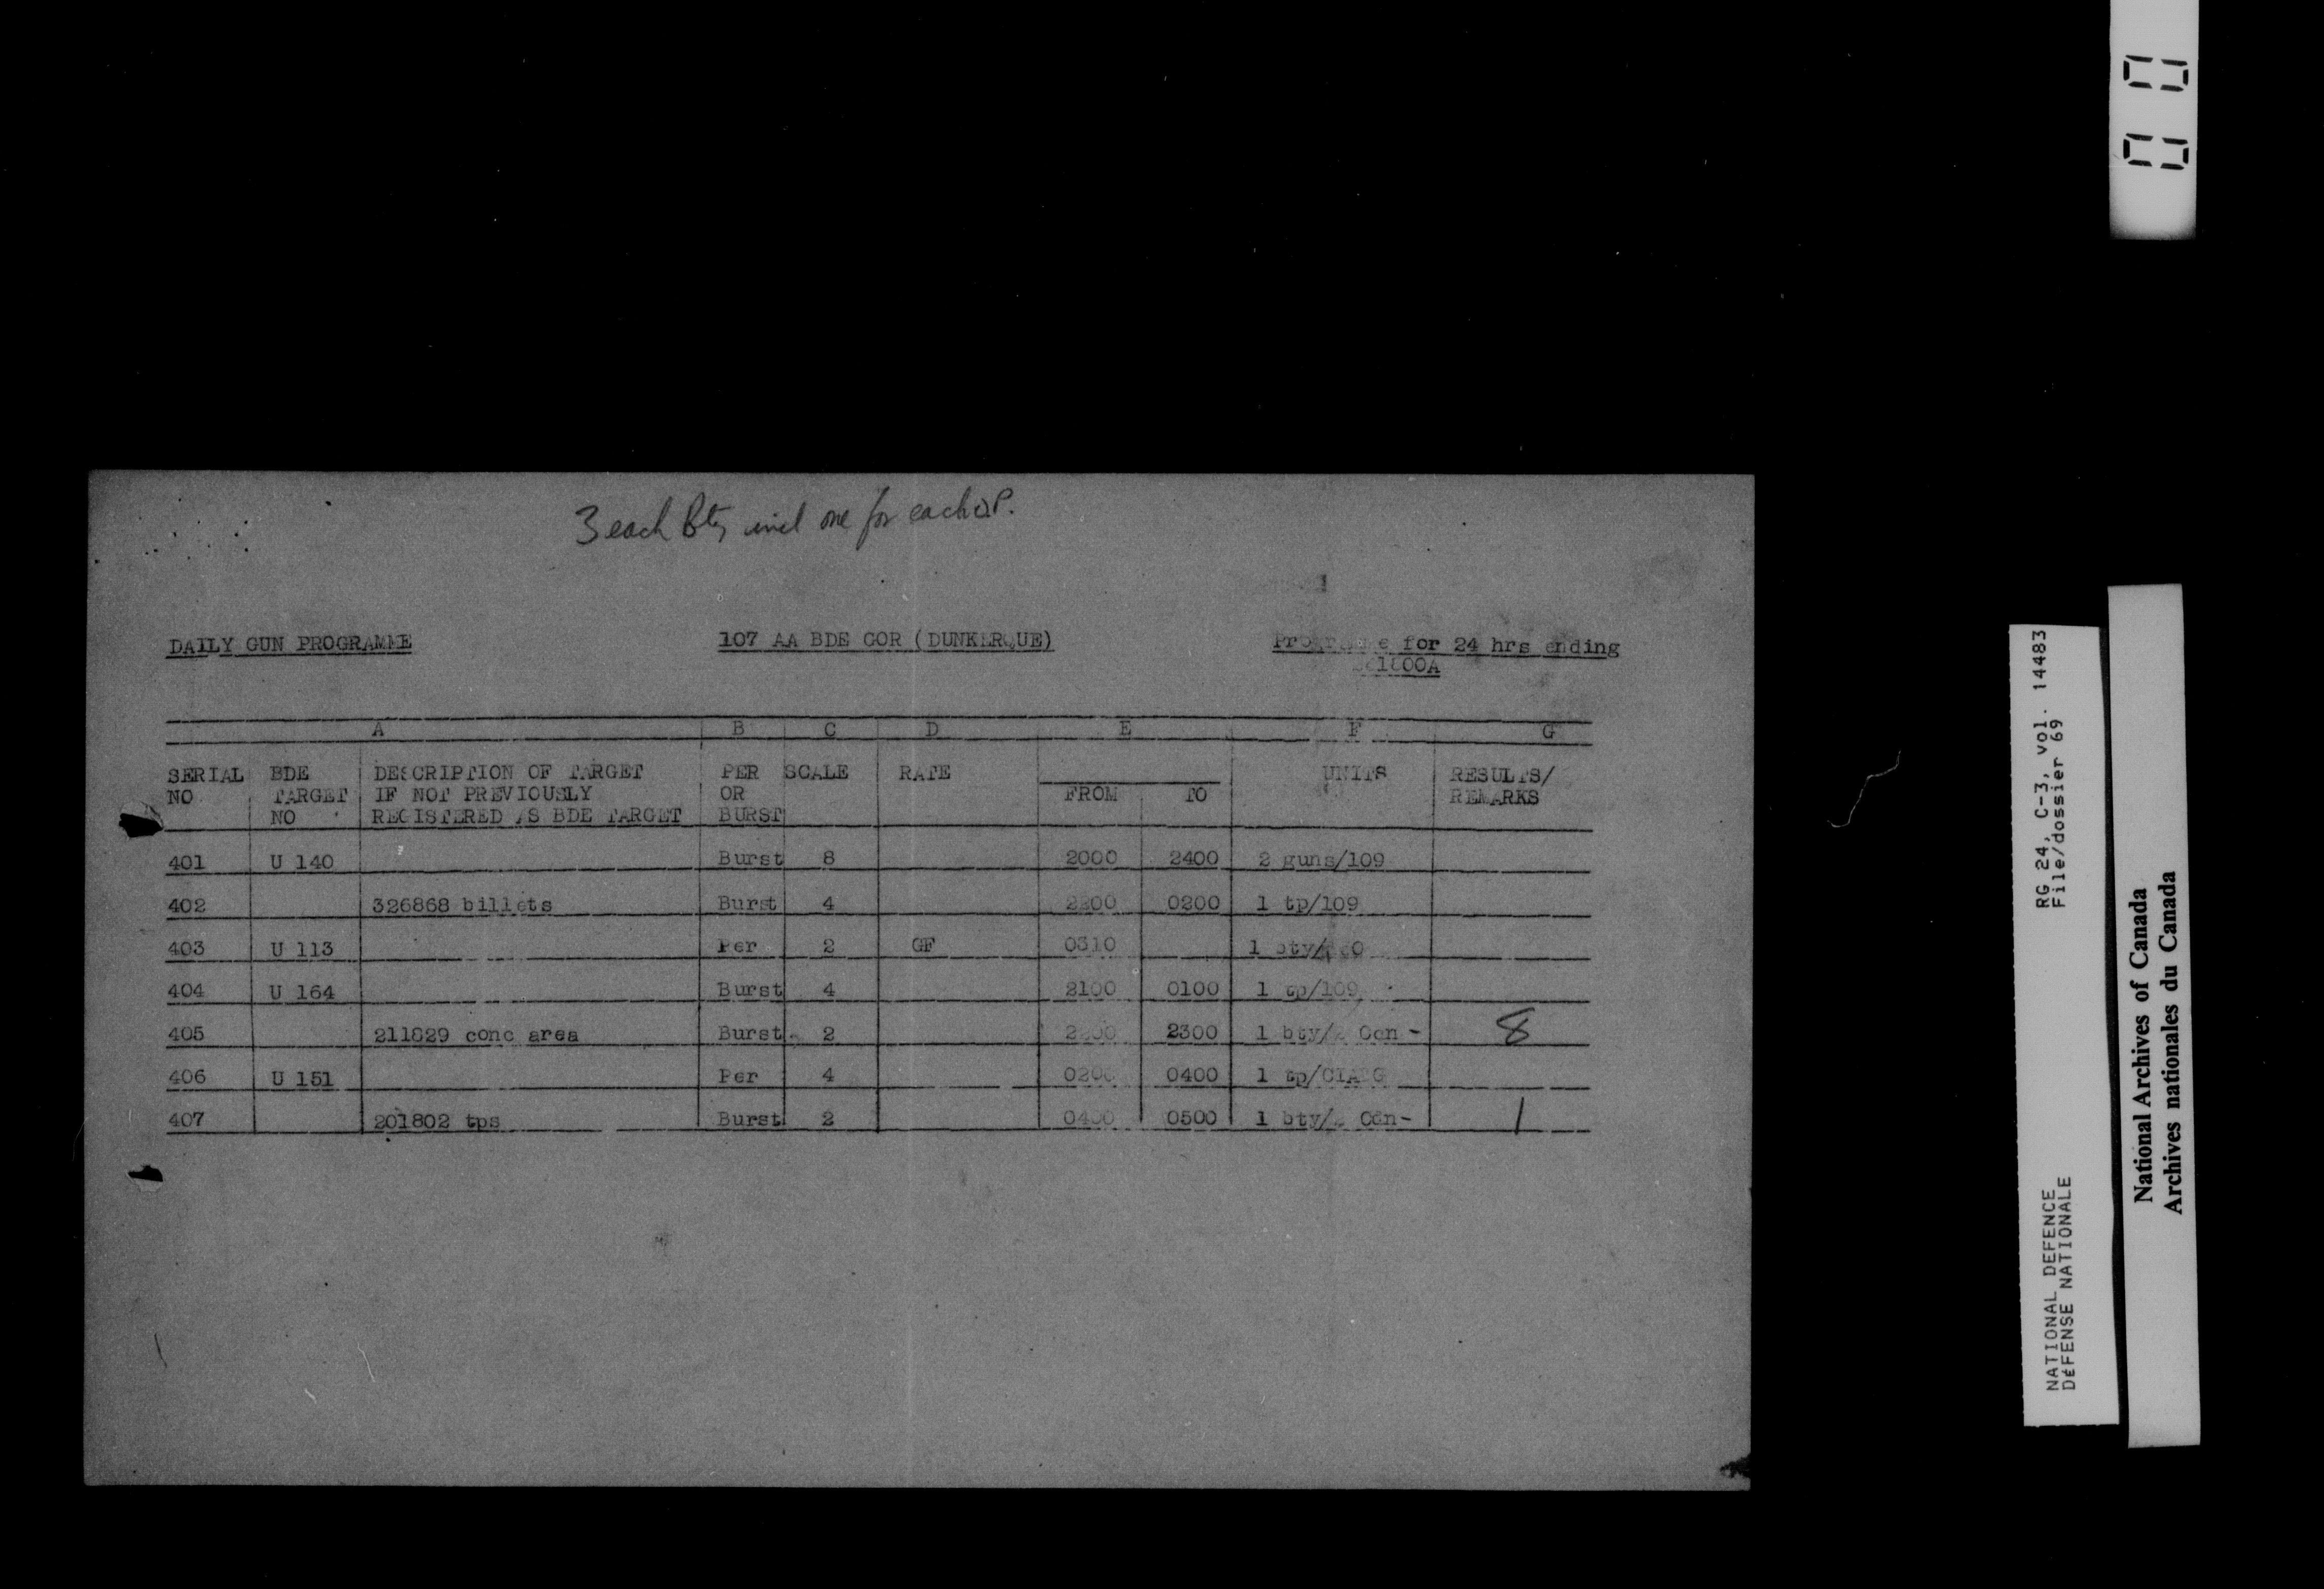 3 each Bty incl one for each OP.
DAILY GUN PROGRAMME 107 AA BDE GOR (DUNKERQUE) Programme for 24 hrs ending
A B C D E F G
SERIAL BDE DESCRIPTION OF TARGET PER SCALE RATE UNITS RESULTS/
NO TARGET IF NOT PREVIOUSLY OR FROM TO REMARKS
NO REGISTERED AS BDE TARGET BURST
401 U 140 Burst 8 2000 2400 2 guns/109
402 326868 billets Burst 4 2200 0200 1 tp/109
403 U 113 Per 2 GF 0310 1 bty/
404 U 164 Burst 4 2100 0100 1 tp/109
405 211829 conc area Burst 2 2300 1 bty/ Cdn - 8
406 U 151 Per 4 0200 0400 1 tp/
407 201802 tps Burst 2 0400 0500 1 bty/ Cdn - 1
RG 24, C-3, vol. 14483
File/dossier 69
NATIONAL DEFENCE
DÉFENSE NATIONALE
National Archives of Canada
Archives nationales du Canada